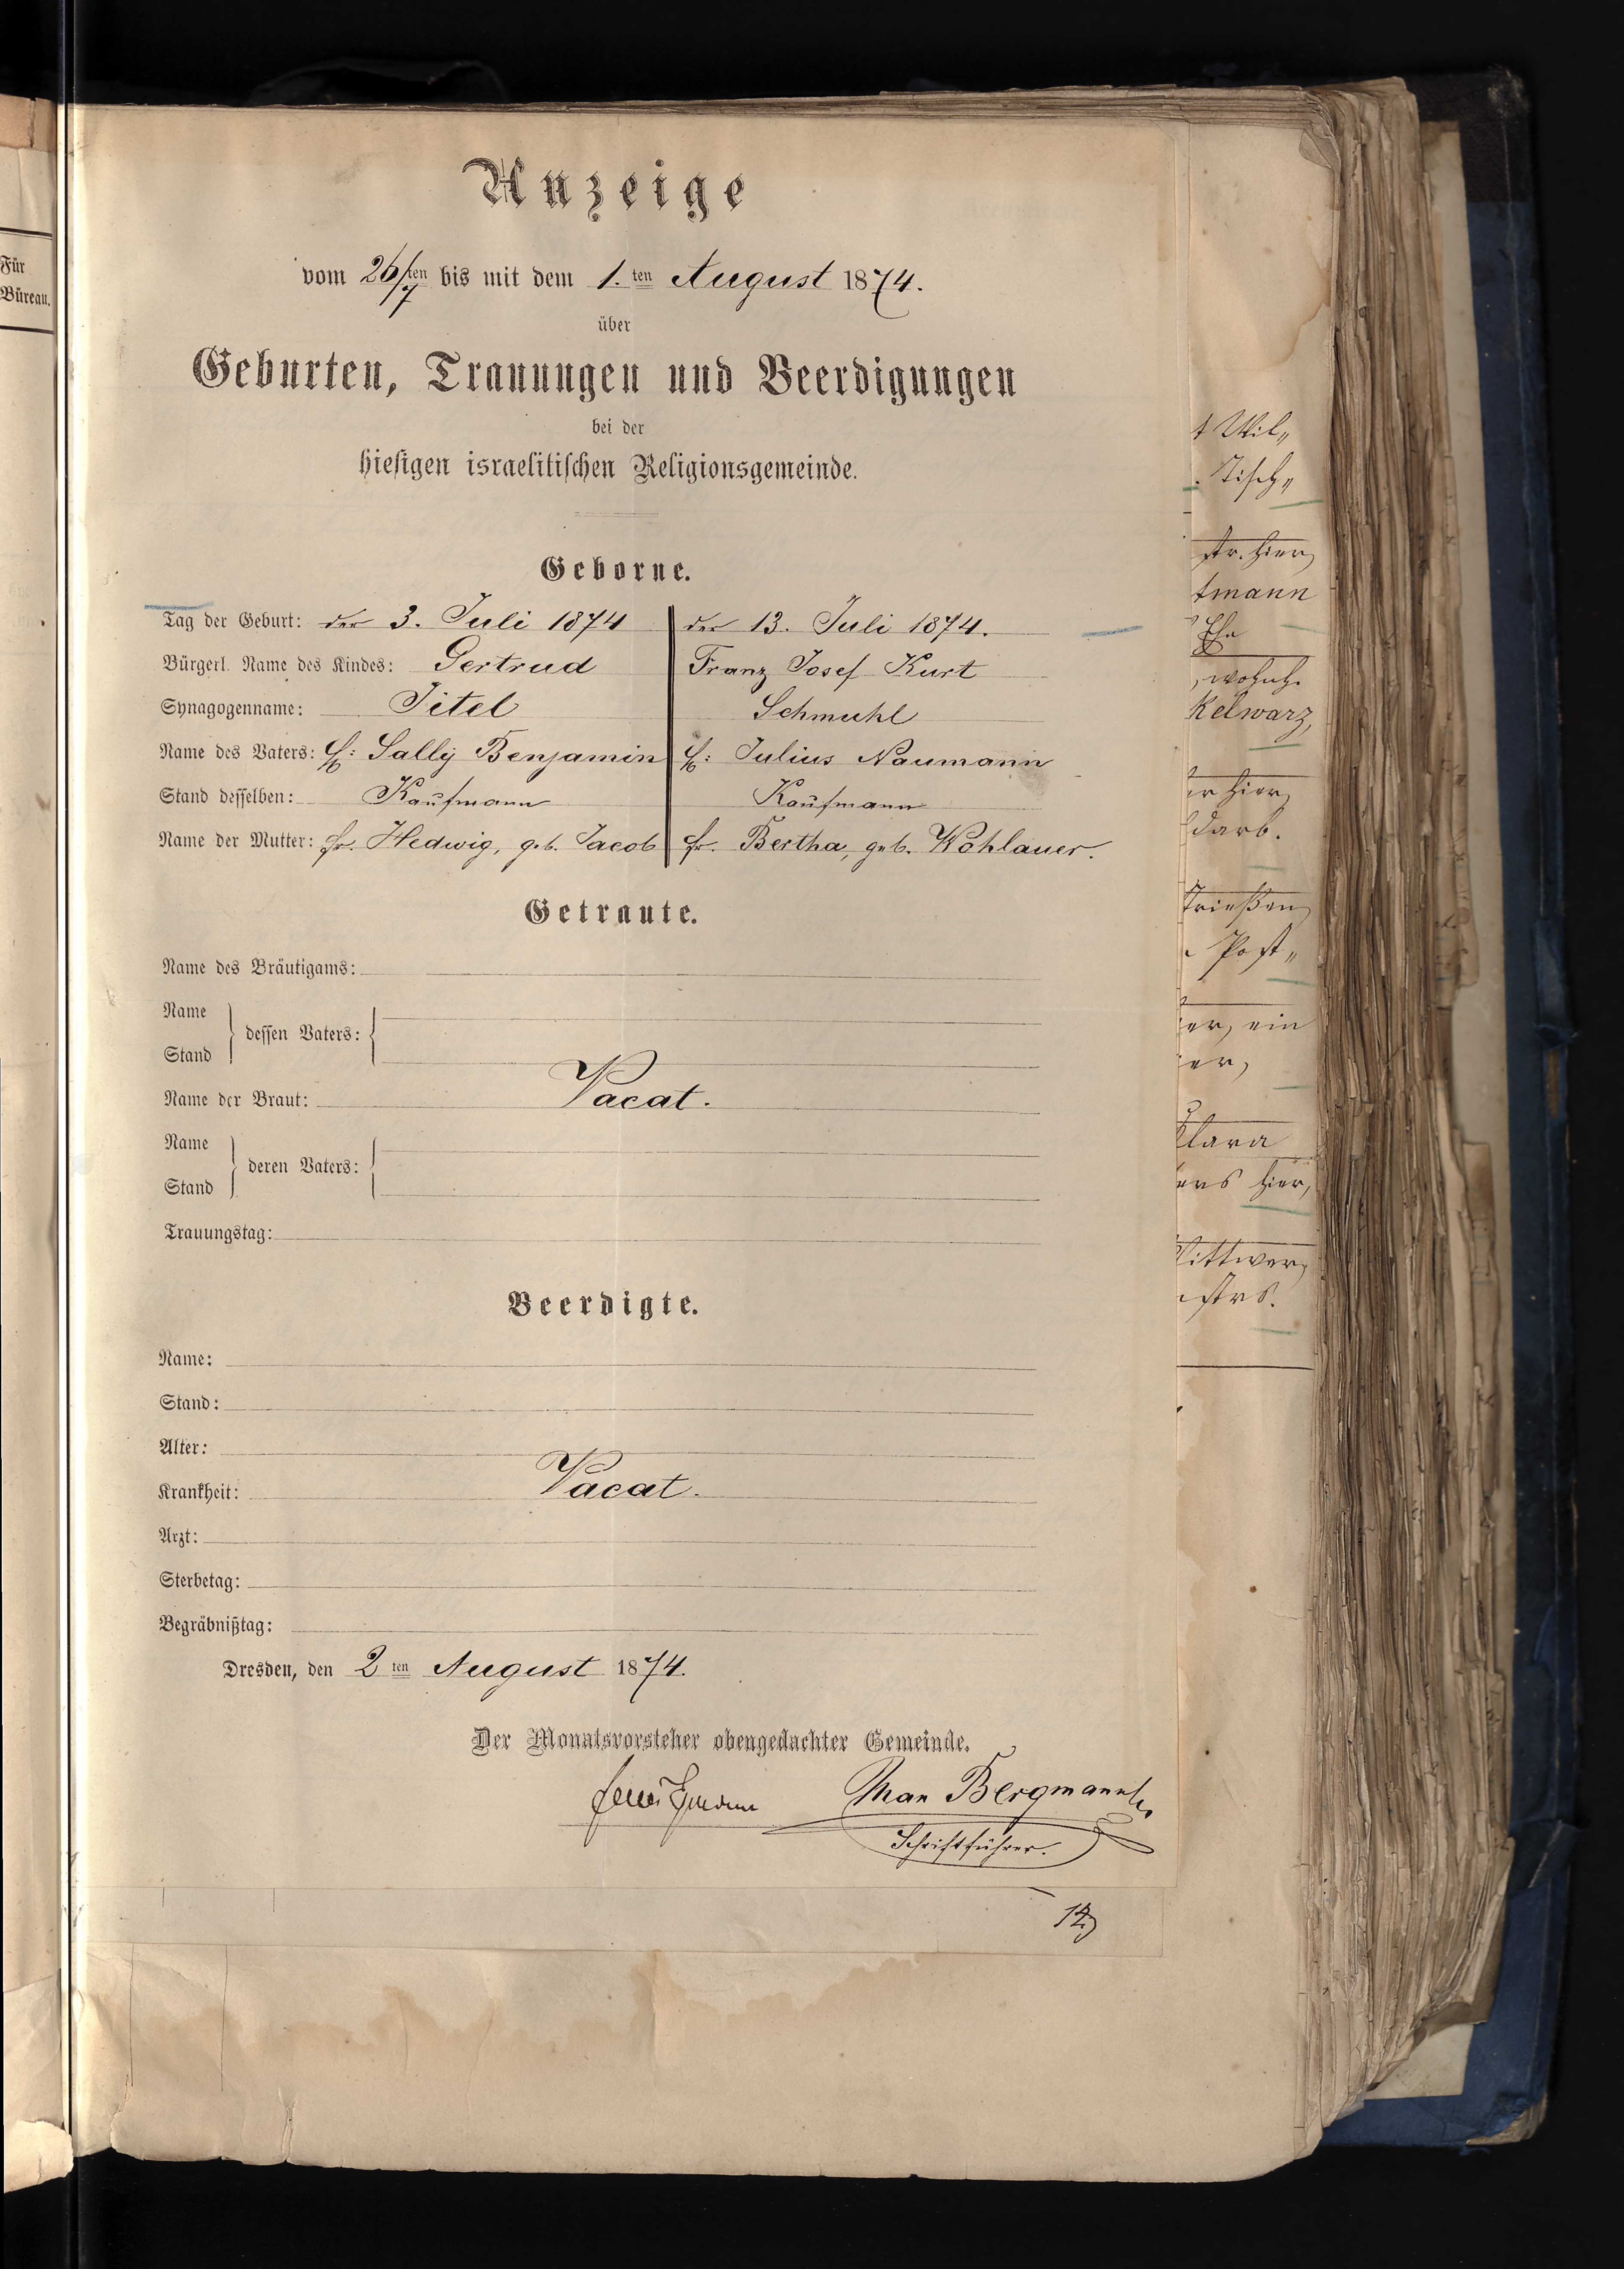 Für
Büreau.
Anzeige
vom 26/7ten bis mit dem 1.ten August 1874.
über
Geburten, Trauungen und Beerdigungen
bei der
hiesigen israelitischen Religionsgemeinde.
Geborne.
Tag der Geburt: der 3. Juli 1874 der 13. Juli 1874.
Bürgerl. Name des Kindes: Gertrud Franz Josef Kurt
Synagogenname: Jitel Schmuhl
Name des Vaters: H: Sally Benjamin H: Julius Naumann
Stand desselben: Kaufmann Kaufmann
Name der Mutter: Fr. Hedwig, geb. Jacob Fr. Bertha, geb. Wohlauer.
Getraute.
Name des Bräutigams:
Name
dessen Vaters:
Stand
Name der Braut: Vacat.
Name
deren Vaters:
Stand
Trauungstag:
Beerdigte.
Name:
Stand:
Alter:
Krankheit: Vacat.
Arzt:
Sterbetag:
Begräbnißtag:
Dresden, den 2 ten August 1874.
Der Monatsvorsteher obengedachter Gemeinde.
Bergmann
Schriftführer.
t Wil„
Tisch„
str. hier,
tmann
Ehe
, wohnh.
Kelwarz,
er hier,
darb.
Post„
er, ein
er,
Clara
ers hier,
Wittwer,
strs.